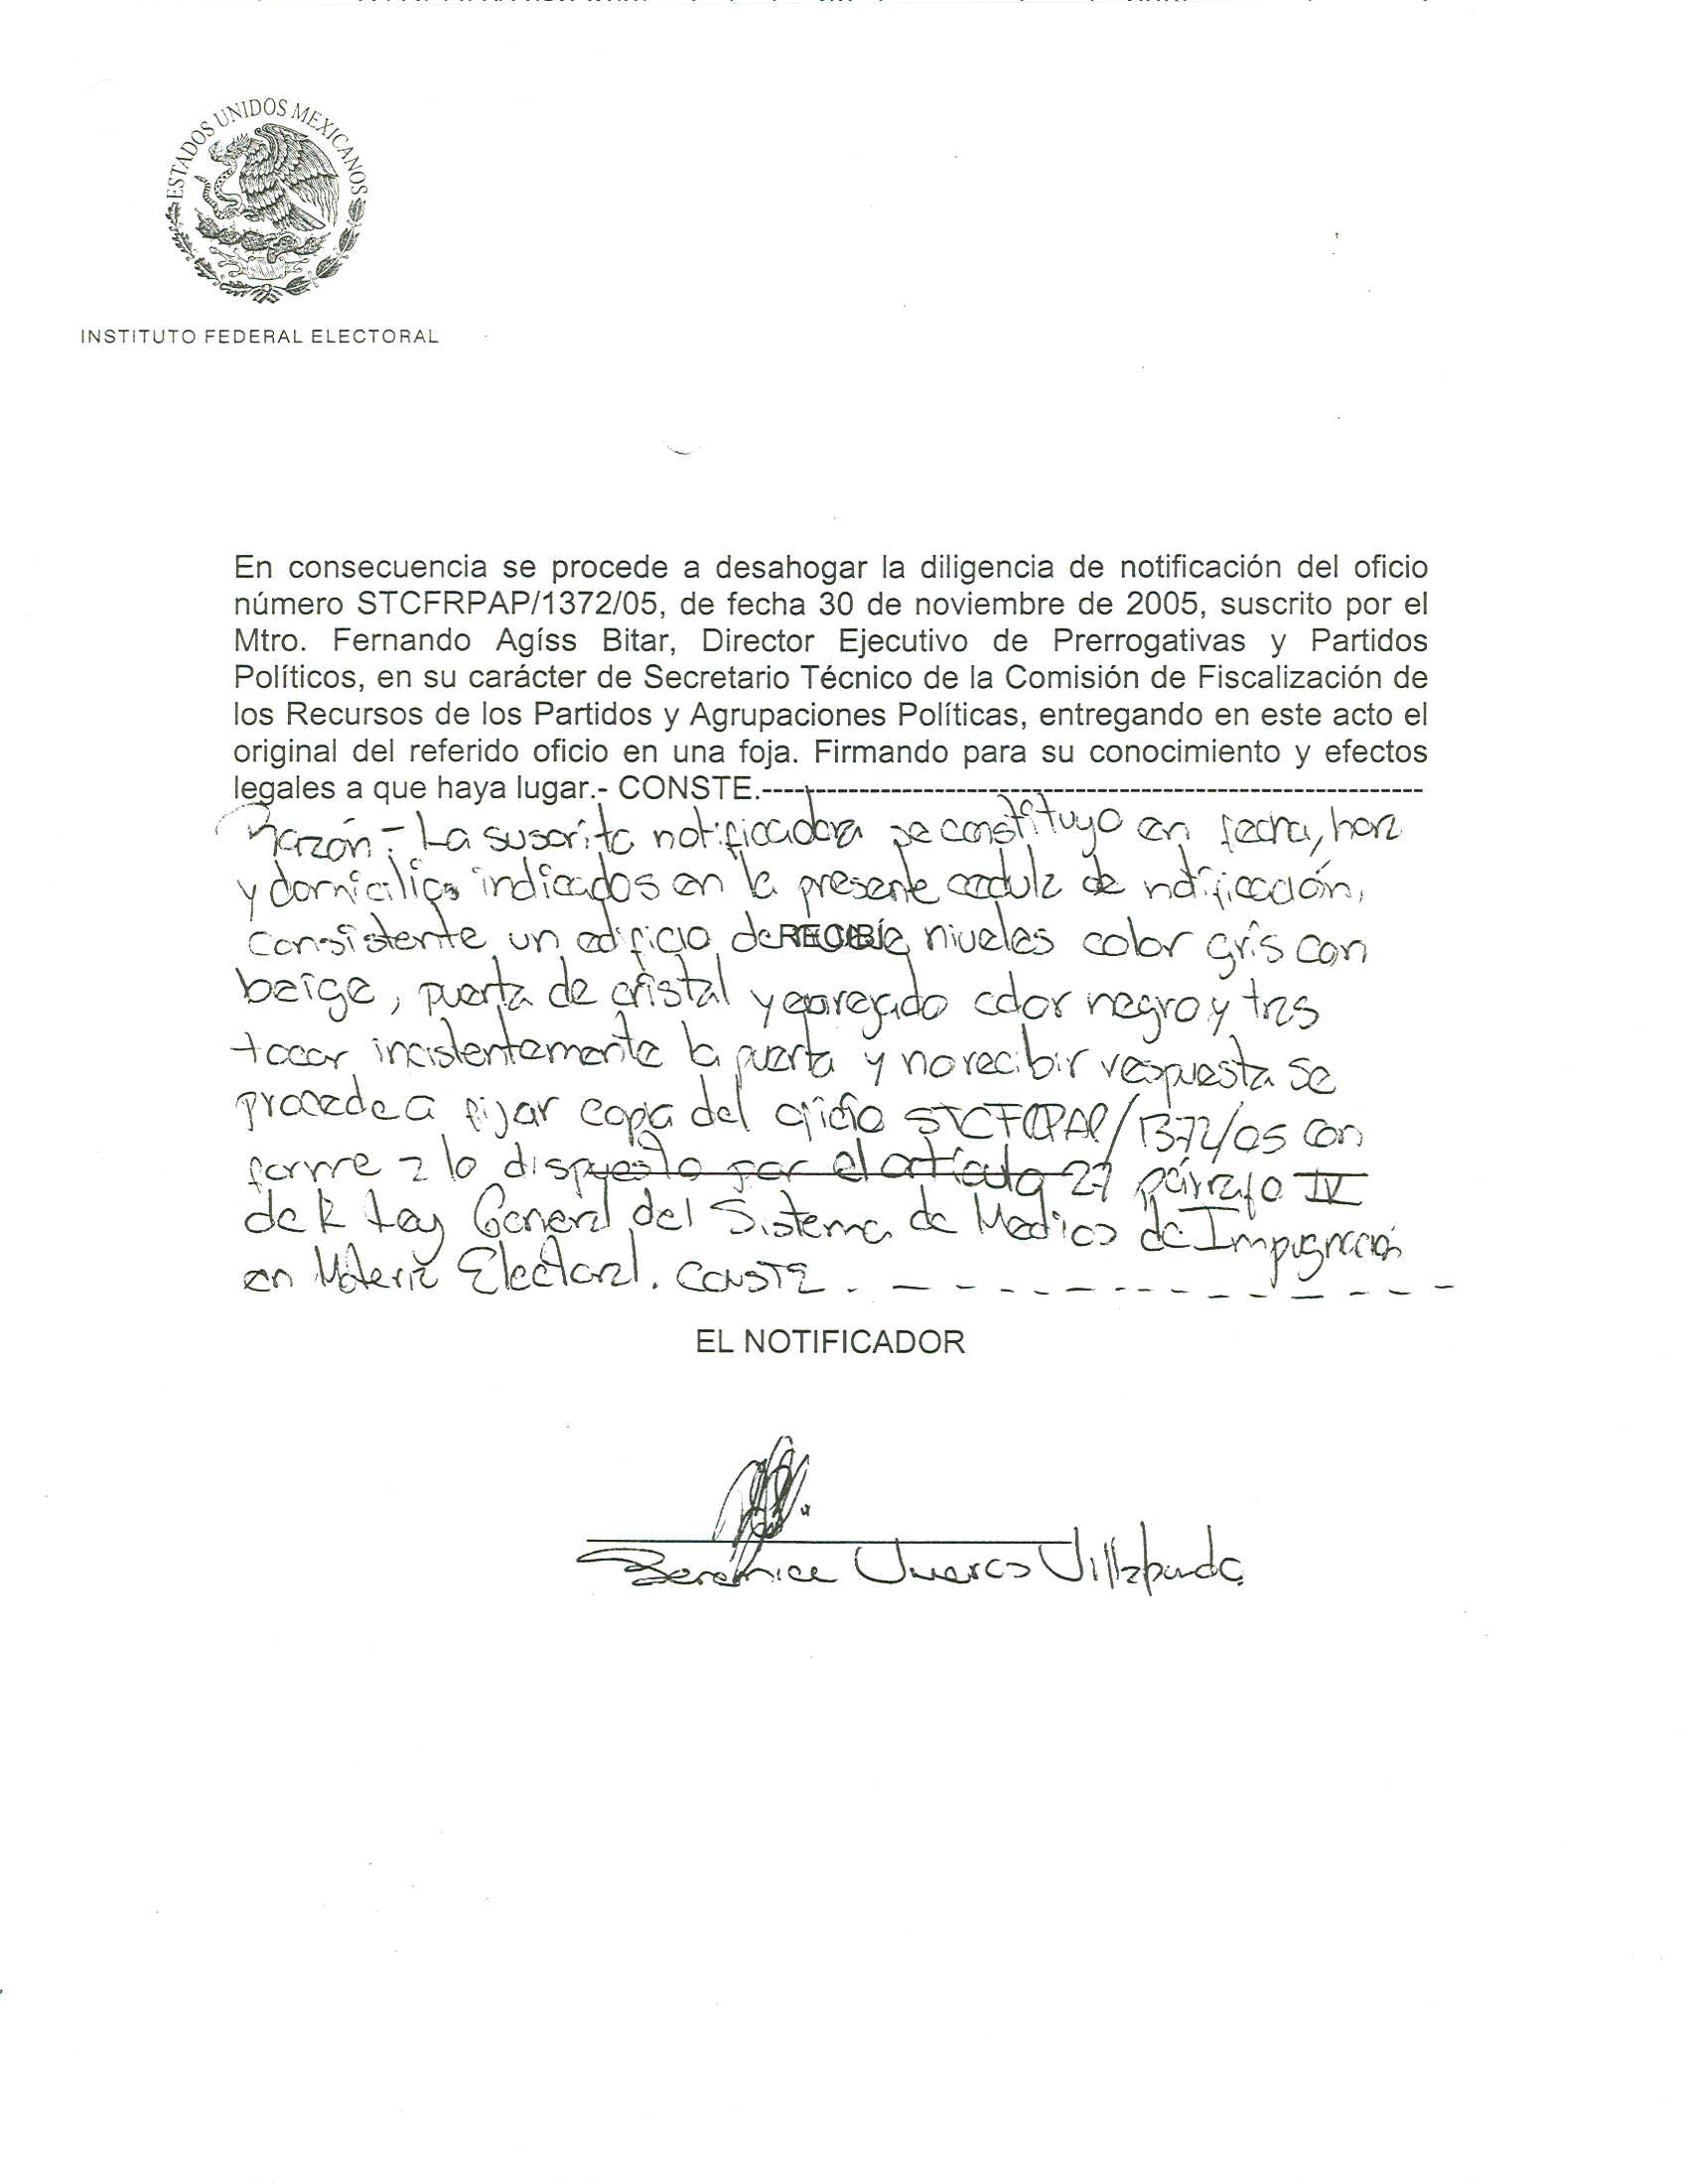 ESTADOS UNIDOS MEXICANOS
INSTITUTO FEDERAL ELECTORAL
En consecuencia se procede a desahogar la diligencia de notificación del oficio
número STCFRPAP/1372/05, de fecha 30 de noviembre de 2005, suscrito por el
Mtro. Fernando Agíss Bitar, Director Ejecutivo de Prerrogativas y Partidos
Políticos, en su carácter de Secretario Técnico de la Comisión de Fiscalización de
los Recursos de los Partidos y Agrupaciones Políticas, entregando en este acto el
original del referido oficio en una foja. Firmando para su conocimiento y efectos
legales a que haya lugar.- CONSTE.------------------------------------------------------------
Razón.- La suscrita notificadora se constituyo en fecha, hora
y domicilios indicados en la presente cedula de notificación,
consistente un edificio de RECIBÍ niveles color gris con
beige, puerta de cristal y color negro y tras
tocar incistentemente la puerta y no recibir respuesta se
procede a fijar copia del oficio STCFRPAP/1372/05 con
forme a lo dispuesto por el artículo 27 párrafo IV
de la Ley General del Sistema de Medios de Impugnación
en Materia Electoral. CONSTE. - - - - - - - - - - - - - -
EL NOTIFICADOR
Berenice Juarez Villalpando